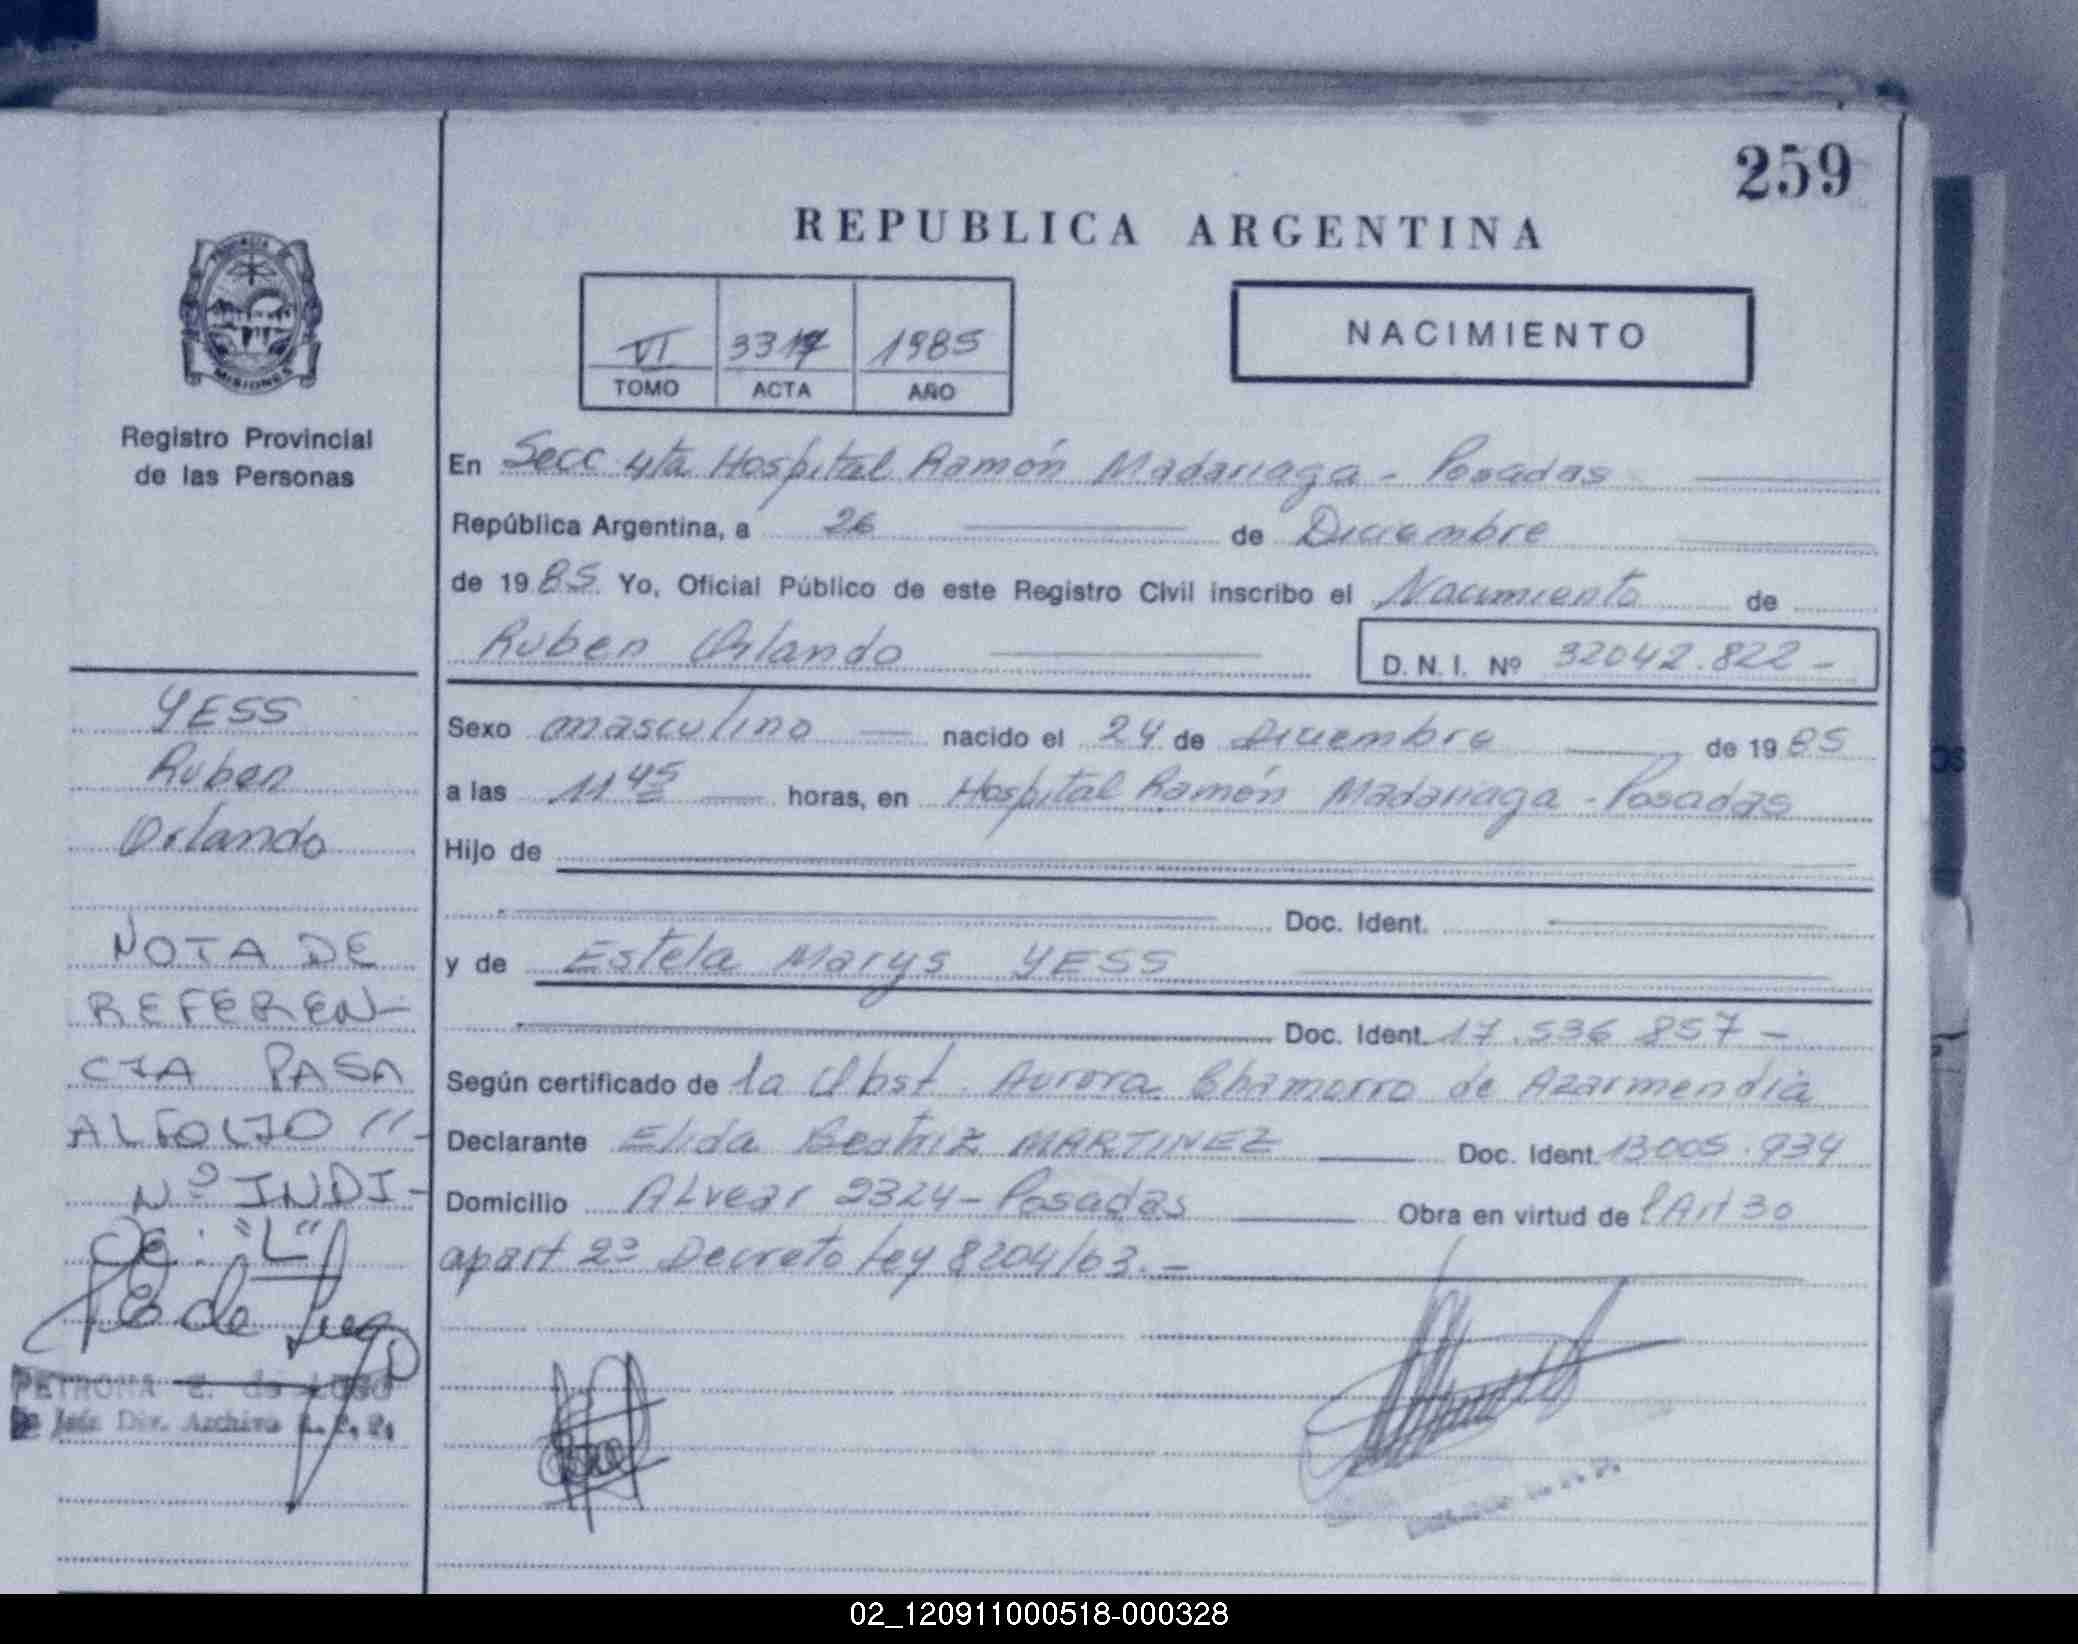 259
REPUBLICA ARGENTINA
VI 3317 1985
TOMO ACTA AÑO
NACIMIENTO
MISIONES
Registro Provincial
de las Personas
En Secc 4ta Hospital Ramón Madariaga - Posadas
República Argentina, a 26 de Diciembre
de 1985 Yo, Oficial Público de este Registro Civil inscribo el Nacimiento de
Ruben Orlando D.N.I. Nº 32042.822 -
Sexo masculino nacido el 24 de Diciembre de 1985
a las 11 45 horas, en Hospital Ramón Madariaga - Posadas
Hijo de
Doc. Ident.
y de Estela Marys YESS
Doc. Ident. 17.536 857 -
Según certificado de la Obst. Aurora Chamorro de Azarmendia
Declarante Elida Beatriz MARTINEZ Doc. Ident. 13005.934
Domicilio Alvear 2324 - Posadas Obra en virtud de l Art 30
apart 2º Decreto Ley 8204/63. -
YESS
Ruben
Orlando
NOTA DE
REFEREN-
CIA PASA
AL FOLIO //-
Nº INDI-
CE: "L"
PETRONA E. de LUGO
Jefe Div. Archivo
02_120911000518-000328